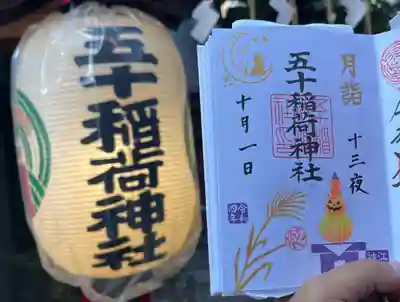 五十稲荷神社
月詣
十三夜
五十稲荷神社
十月一日
令和四年